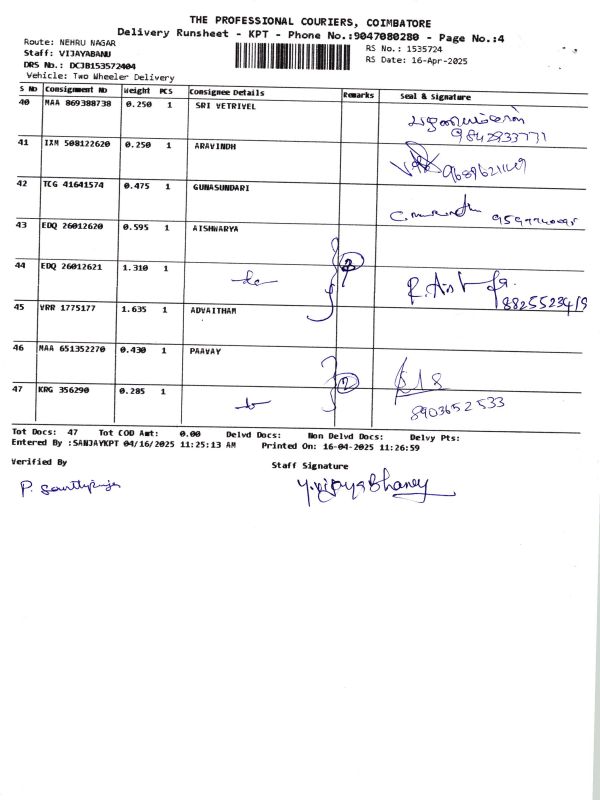 THE PROFESSIONAL COURIERS, COIMBATORE
Delivery Runsheet - KPT - Phone No.:9047080280 - Page No.:4
Route: NEHRU NAGAR
Staff: VIJAYABANU
DRS No.: DCJB153572404
Vehicle: Two Wheeler Delivery
RS No.: 1535724
RS Date: 16-Apr-2025
S No Consignment No Weight PCS Consignee Details Remarks Seal & Signature
40 MAA 869388738 0.250 1 SRI VETRIVEL
9842933771
41 IXM 508122620 0.250 1 ARAVINDH
9689621169
42 TCG 41641574 0.475 1 GUNASUNDARI
43 EDQ 26012620 0.595 1 AISHWARYA
44 EDQ 26012621 1.310 1
8825523419
45 VRR 1775177 1.635 1 ADVAITHAM
46 MAA 651352270 0.430 1 PAAVAY
2
47 KRG 356290 0.285 1
8903652533
Tot Docs: 47 Tot COD Amt: 0.00 Delvd Docs: Non Delvd Docs: Delvy Pts:
Entered By :SANJAYKPT 04/16/2025 11:25:13 AM Printed On: 16-04-2025 11:26:59
Verified By
Staff Signature